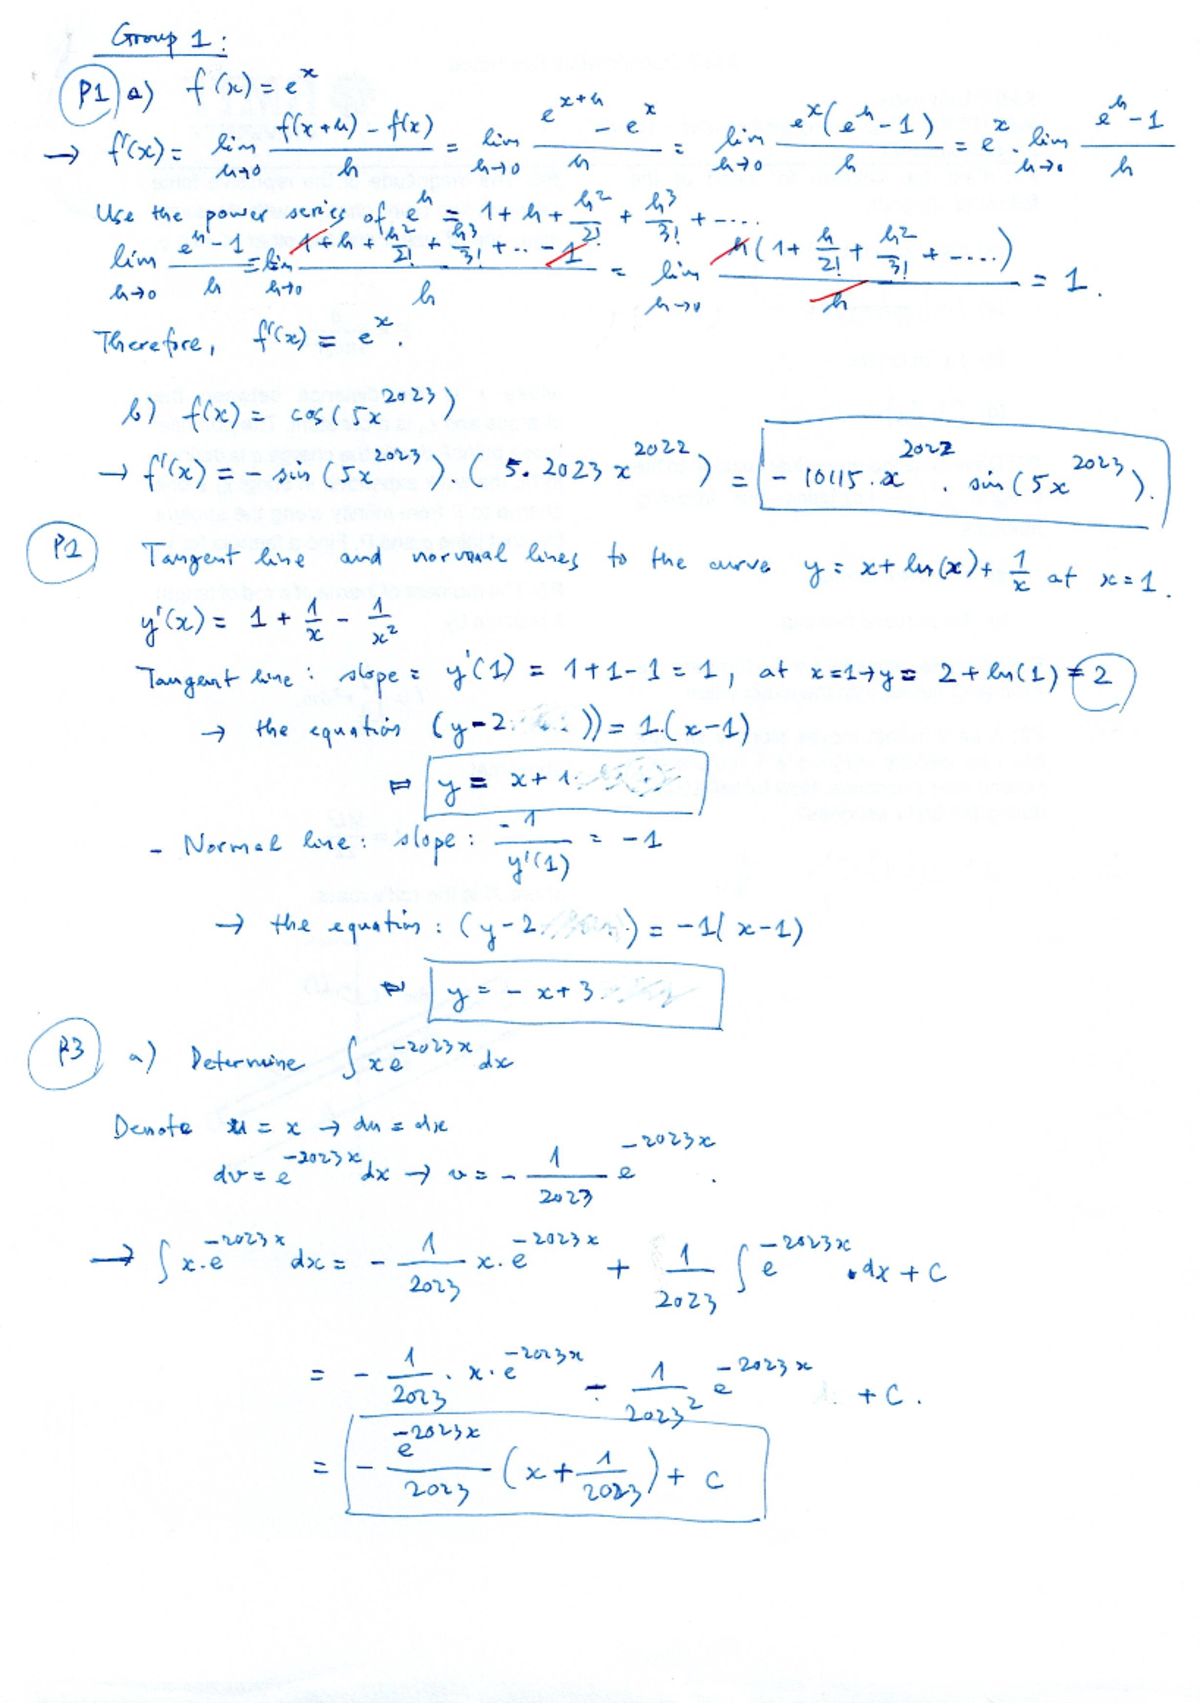 Group 1:
P1 a) f(x) = e^x
→ f'(x) = lim_{h→0} (f(x+h) - f(x))/h = lim_{h→0} (e^{x+h} - e^x)/h = lim_{h→0} e^x(e^h - 1)/h = e^x · lim_{h→0} (e^h - 1)/h
Use the power series of e^h = 1 + h + h^2/2! + h^3/3! + ....
lim_{h→0} (e^h - 1)/h = lim_{h→0} (1 + h + h^2/2! + h^3/3! + ... - 1)/h = lim_{h→0} h(1 + h/2! + h^2/3! + ....)/h = 1.
Therefore, f'(x) = e^x.
b) f(x) = cos(5x^2023)
→ f'(x) = - sin(5x^2023) (5.2023 x^2022) = - 10115.x^2022 . sin(5x^2023).
P2 Tangent line and normal lines to the curve y = x + ln(x) + 1/x at x = 1.
y'(x) = 1 + 1/x - 1/x^2
Tangent line: slope = y'(1) = 1 + 1 - 1 = 1, at x = 1 → y = 2 + ln(1) = 2
→ the equation (y - 2)) = 1.(x - 1)
⇔ y = x + 1
- Normal line: slope: -1/y'(1) = -1
→ the equation: (y - 2) = -1(x - 1)
⇔ y = - x + 3
P3 a) Determine ∫ x e^{-2023x} dx
Denote u = x → du = dx
dv = e^{-2023x} dx → v = - 1/2023 e^{-2023x}.
→ ∫ x.e^{-2023x} dx = - 1/2023 x.e^{-2023x} + 1/2023 ∫ e^{-2023x} . dx + C
= - 1/2023 . x.e^{-2023x} - 1/2023^2 e^{-2023x} + C.
= - e^{-2023x}/2023 (x + 1/2023) + C